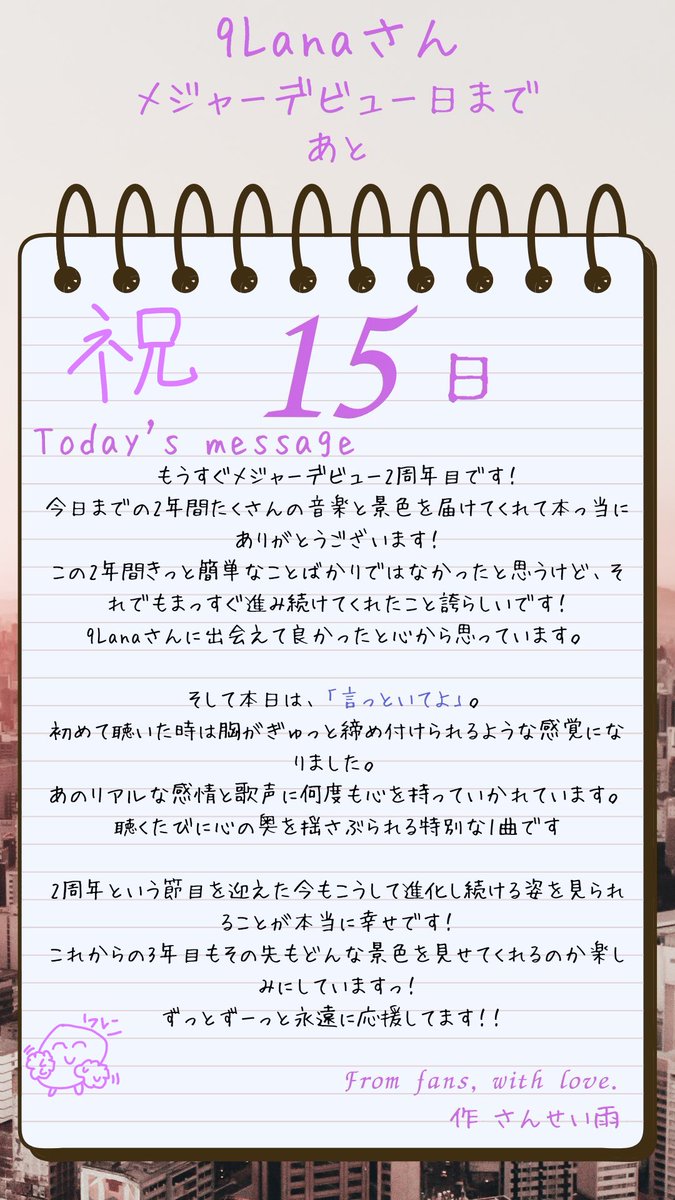 9Lanaさん
メジャーデビュー日まで
あと
祝 15日
Today's message
もうすぐメジャーデビュー2周年目です!
今日までの2年間たくさんの音楽と景色を届けてくれて本っ当に
ありがとうございます!
この2年間きっと簡単なことばかりではなかったと思うけど、そ
れでもまっすぐ進み続けてくれたこと誇らしいです!
9Lanaさんに出会えて良かったと心から思っています。
そして本日は、「言っといてよ」。
初めて聴いた時は胸がぎゅっと締め付けられるような感覚にな
りました。
あのリアルな感情と歌声に何度も心を持っていかれています。
聴くたびに心の奥を揺さぶられる特別な1曲です
2周年という節目を迎えた今もこうして進化し続ける姿を見られ
ることが本当に幸せです!
これからの3年目もその先もどんな景色を見せてくれるのか楽し
みにしていますっ!
ずっとずーっと永遠に応援してます!!
フレー
From fans, with love.
作 さんせい雨